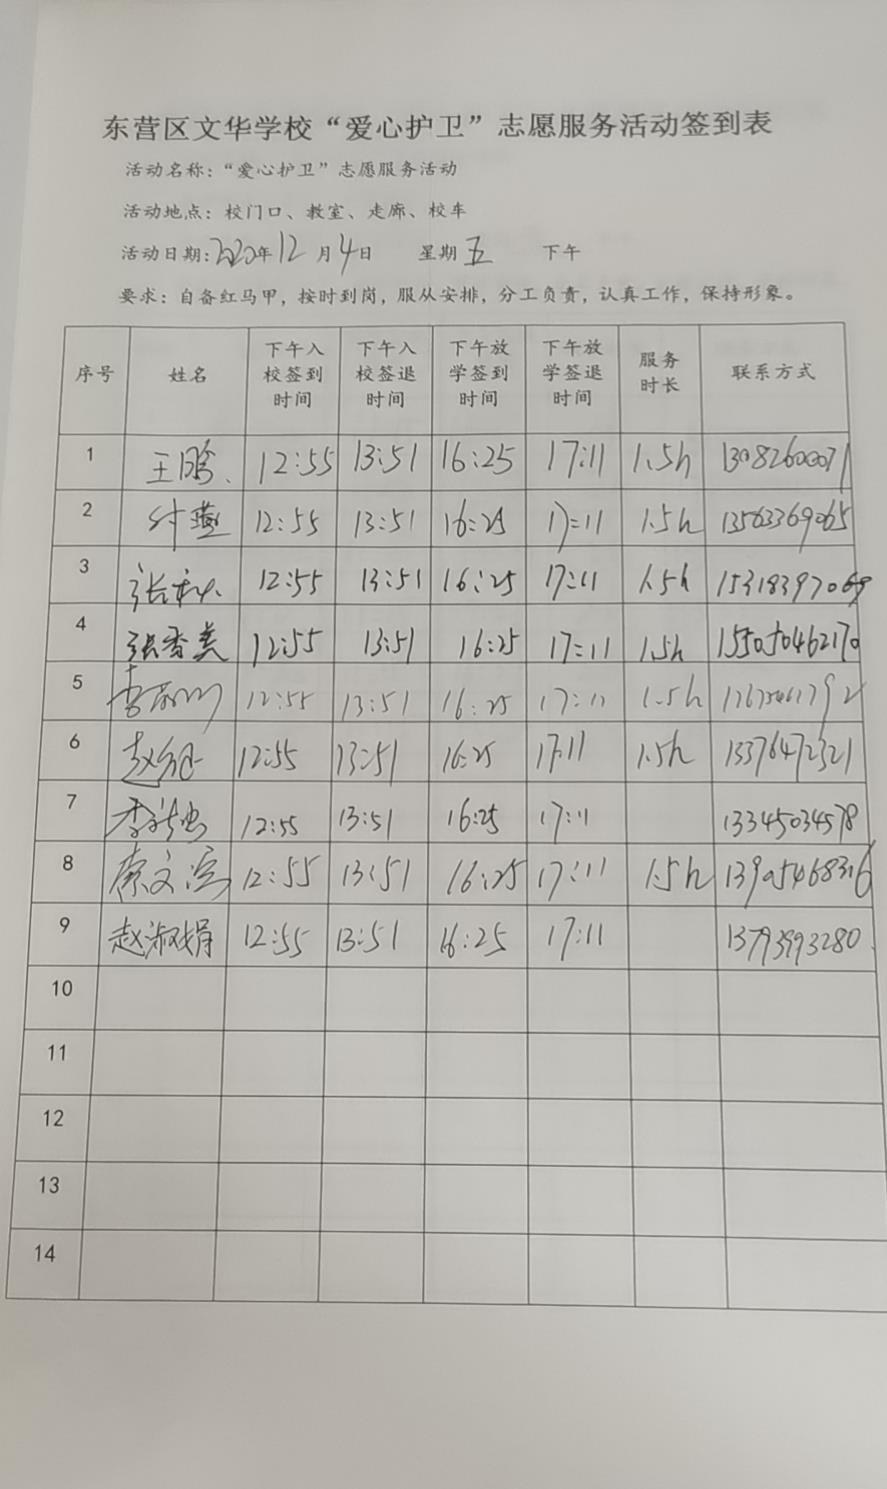 东营区文华学校“爱心护卫”志愿服务活动签到表
活动名称：“爱心护卫”志愿服务活动
活动地点：校门口、教室、走廊、校车
活动日期：2020年12月4日 星期五 下午
要求：自备红马甲，按时到岗，服从安排，分工负责，认真工作，保持形象。
序号 姓名 下午入校签到时间 下午入校签退时间 下午放学签到时间 下午放学签退时间 服务时长 联系方式
1 王鹏 12:55 13:51 16:25 17:11 1.5h 13082600071
2 付燕 12:55 13:51 16:25 17:11 1.5h 13563369065
3 12:55 13:51 16:25 17:11 1.5h 15318397069
4 张香美 12:55 13:51 16:25 17:11 1.5h
5 12:55 13:51 16:25 17:11 1.5h
6 12:55 13:51 16:25 17:11 1.5h 13376472321
7 12:55 13:51 16:25 17:11 13345034578
8 12:55 13:51 16:25 17:11 1.5h
9 赵淑娟 12:55 13:51 16:25 17:11 13793993280
10
11
12
13
14